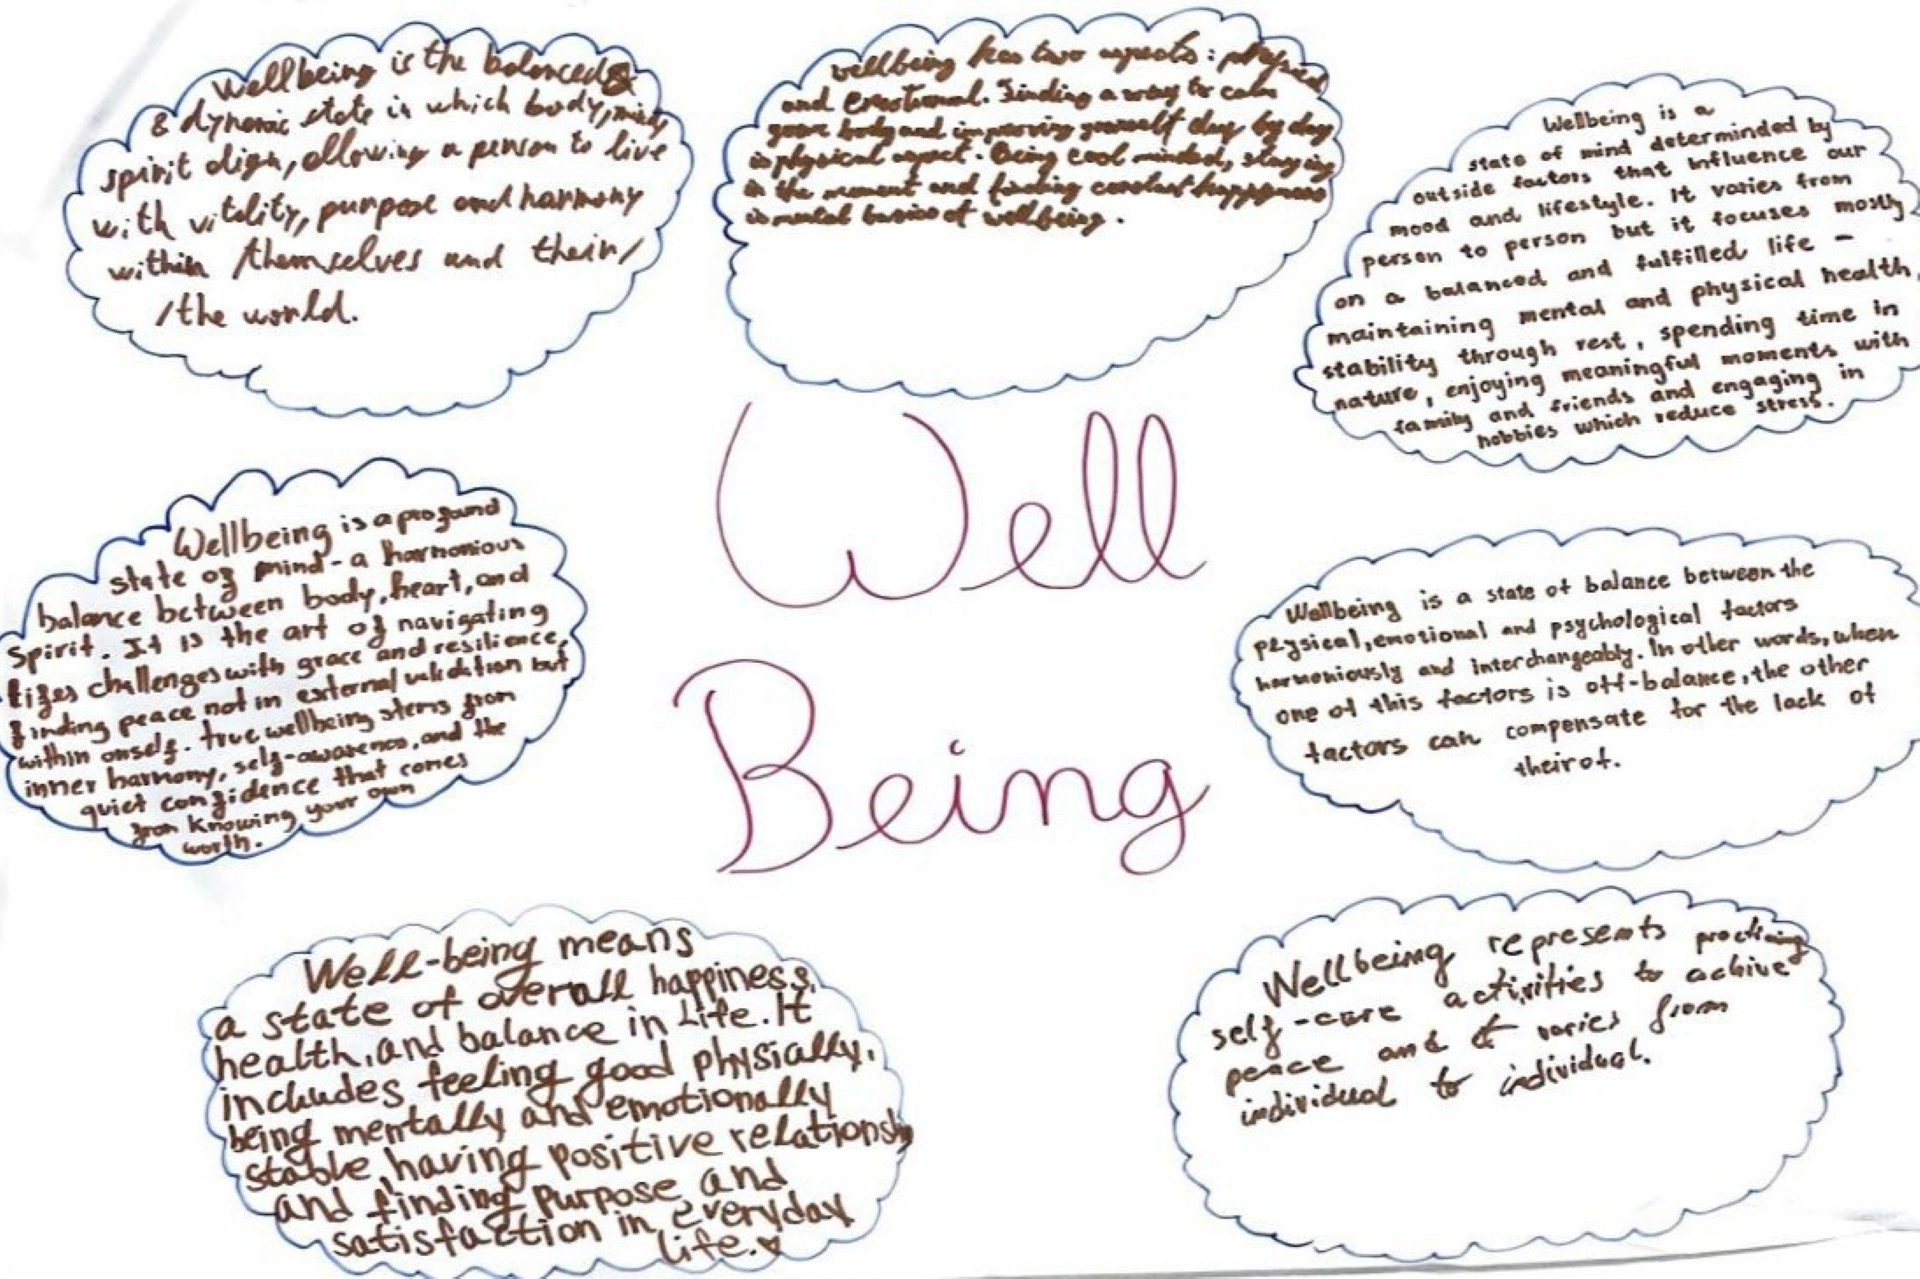 Wellbeing is the balanced &
& dynamic state in which body, mind,
spirit align, allowing a person to live
with vitality, purpose and harmony
within /themselves and their/
/the world.
wellbeing has two aspects: physical
and emotional. Finding a way to calm
your body and improving yourself day by day
is physical aspect. Being cool minded, staying
in the moment and finding constant happyness
is mental basics of wellbeing.
Wellbeing is a
state of mind determinded by
outside factors that influence our
mood and lifestyle. It varies from
person to person but it focuses mostly
on a balanced and fulfilled life –
maintaining mental and physical health,
stability through rest, spending time in
nature, enjoying meaningful moments with
family and friends and engaging in
hobbies which reduce stress.
Well
Being
Wellbeing is a profound
state of mind - a harmonious
balance between body, heart, and
spirit. It is the art of navigating
lifes challenges with grace and resilience,
finding peace not in external validation but
within onself. true wellbeing stems from
inner harmony, self-awareness, and the
quiet confidence that comes
from knowing your own
worth.
Wellbeing is a state of balance between the
physical, emotional and psychological factors
harmoniously and interchangeably. In other words, when
one of this factors is off-balance, the other
factors can compensate for the lack of
theirof.
Well-being means
a state of overall happiness,
health, and balance in life. It
includes feeling good physially,
being mentally and emotionally
stable, having positive relationship
and finding purpose and
satisfaction in everyday
life. ♥
Wellbeing represents practicing
self-care activities to achive
peace and varies from
individual to individual.